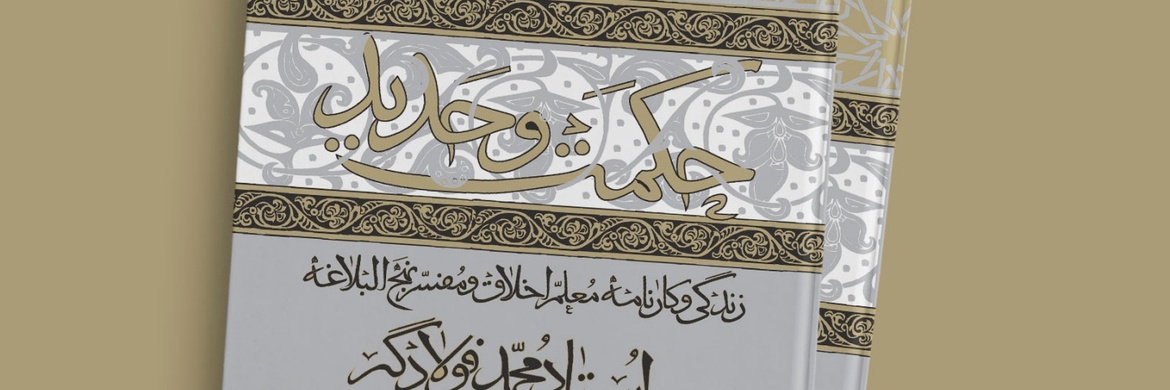 حکمت و حدید
زندگی و کارنامهٔ معلم اخلاق و مفسّر نهج البلاغه
استاد محمّد فولادگر